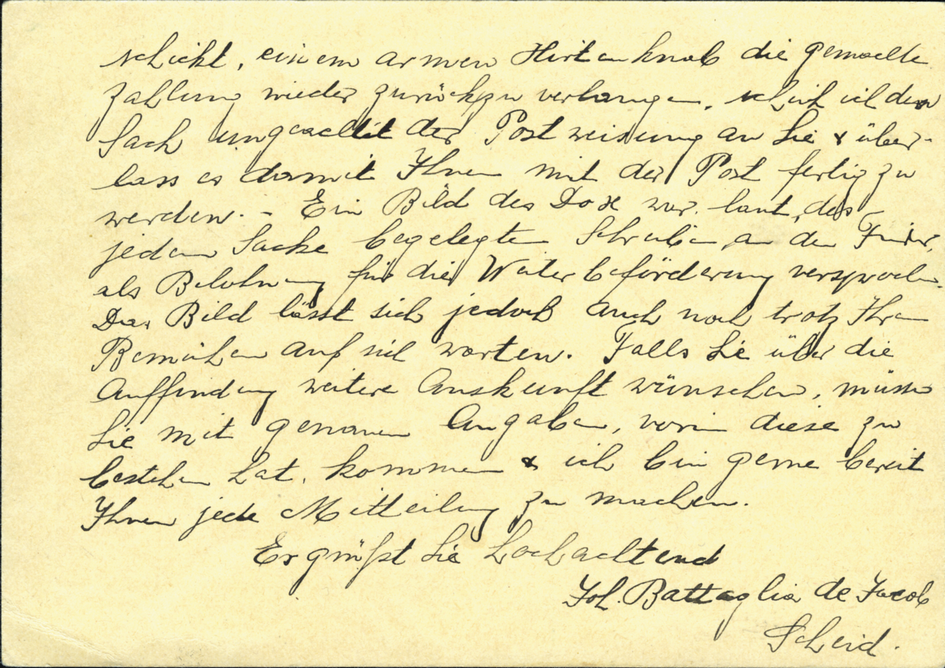 schickt, einem armen Hirtenknab die gemachte
Zahlung wieder zurückzuverlangen, schick ich den
Sach ungeachtet der Postweisung an Sie & über-
lass es damit Ihnen mit der Post fertig zu
werden. - Ein Bild des Dox war laut, des
jedem Sacke beigelegten Schreiben, an den Finder,
als Belohnung für die Weiterbeförderung versprochen.
Das Bild lässt sich jedoch auch noch trotz Ihren
Bemühen auf sich warten. Falls Sie über die
Auffindung weitere Auskunft wünschen, müssen
Sie mit genauen Angaben, worin diese zu
bestehen hat, kommen & ich bin gerne bereit
Ihnen jede Mitteilung zu machen.
Es grüsst Sie hochachtend
Joh. Battaglia de Jacob
Scheid.